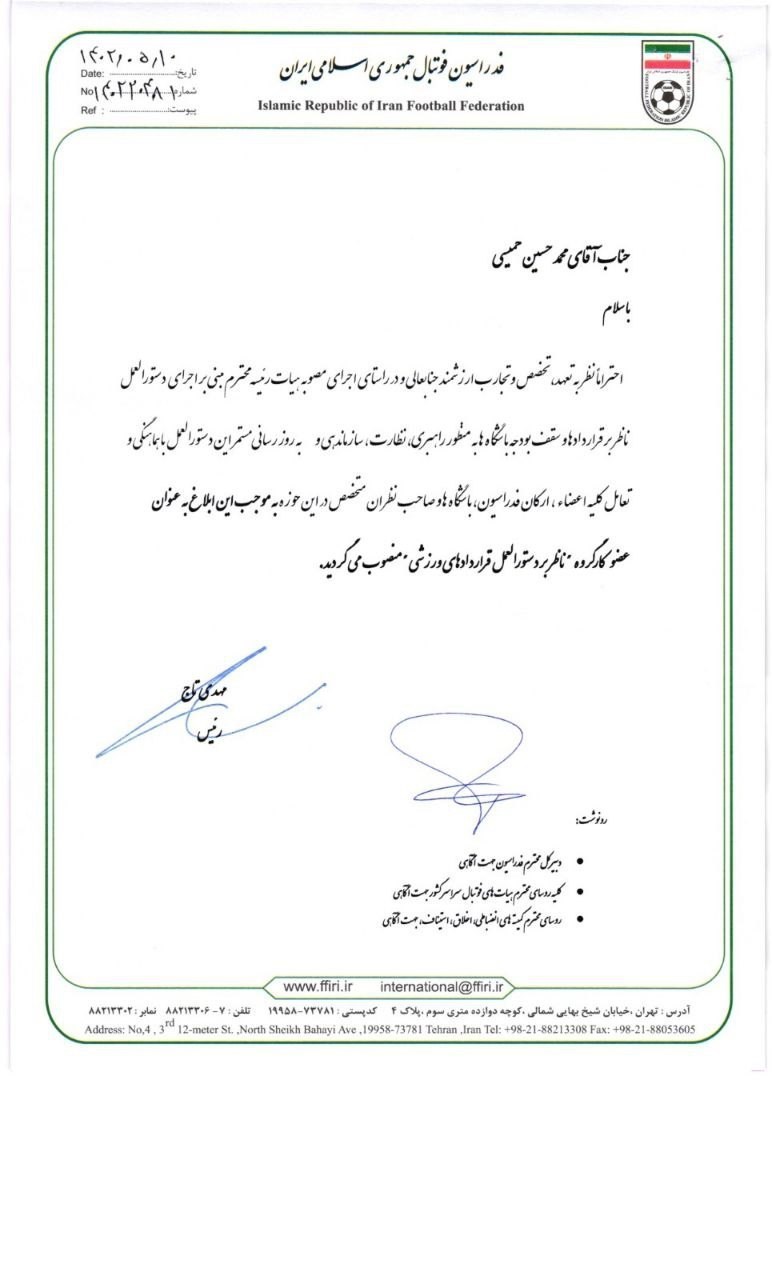 فدراسیون فوتبال جمهوری اسلامی ایران
Islamic Republic of Iran Football Federation
۱۴۰۲/۰۵/۱۰
Date: تاریخ:
No ۱۴۰۲۲۰۴۸۱ شماره
Ref : پیوست:
جناب آقای محمد حسین حمیسی
باسلام
احتراماً نظر به تعهد، تخصص و تجارب ارزشمند جنابعالی و در راستای اجرای مصوبه هیات رئیسه محترم مبنی بر اجرای دستورالعمل
ناظر بر قراردادها و سقف بودجه باشگاه ها به منظور راهبری، نظارت، سازماندهی و به روز رسانی مستمر این دستورالعمل با هماهنگی و
تعامل کلیه اعضاء ، ارکان فدراسیون، باشگاه ها و صاحب نظران متخصص در این حوزه به موجب این ابلاغ به عنوان
عضو کارگروه "ناظر بر دستورالعمل قراردادهای ورزشی" منصوب می گردید.
مهدی تاج
رئیس
رونوشت:
• دبیرکل محترم فدراسیون جهت آگاهی
• کلیه روسای محترم هیات های فوتبال سراسر کشور جهت آگاهی
• روسای محترم کمیته های انضباطی، اخلاق، استیناف، جهت آگاهی
www.ffiri.ir international@ffiri.ir
آدرس : تهران ،خیابان شیخ بهایی شمالی ،کوچه دوازده متری سوم ،پلاک ۴ کدپستی : ۷۳۷۸۱-۱۹۹۵۸ تلفن : ۷ - ۸۸۲۱۳۳۰۶ نمابر : ۸۸۲۱۳۳۰۲
Address: No,4 , 3rd 12-meter St. ,North Sheikh Bahayi Ave ,19958-73781 Tehran ,Iran Tel: +98-21-88213308 Fax: +98-21-88053605